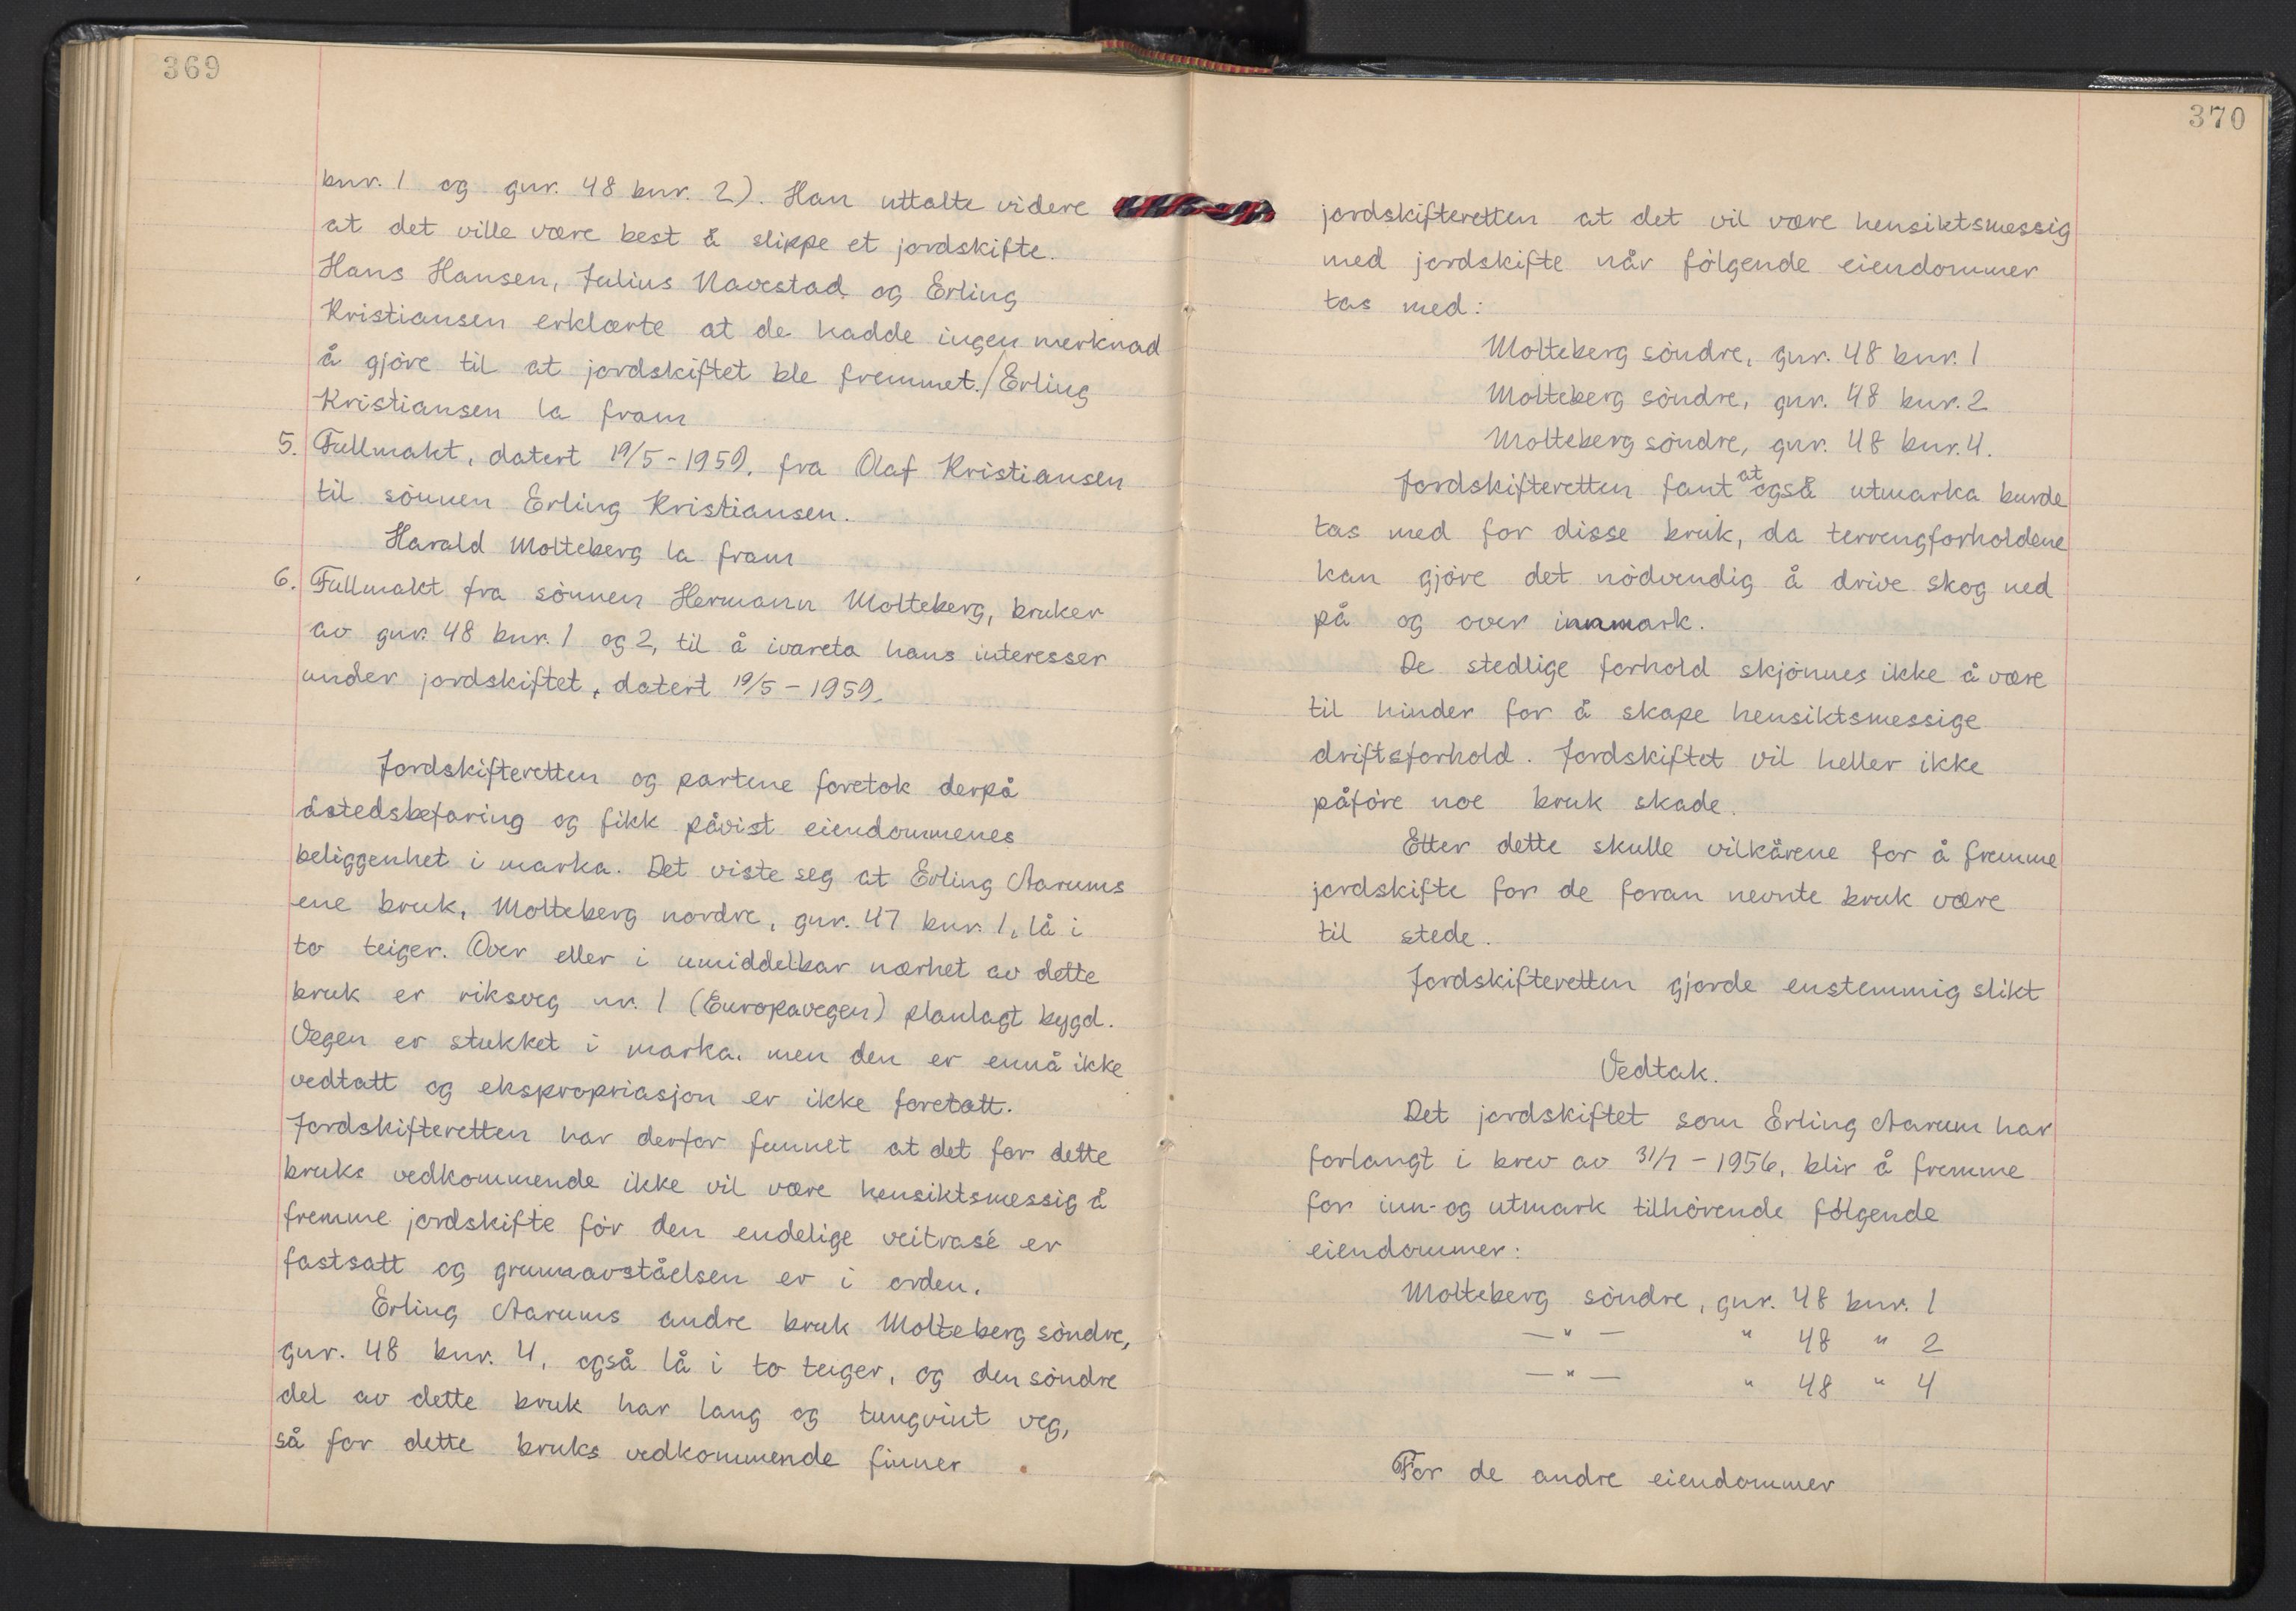 369
bnr. 1 og gnr. 48 bnr. 2). Han uttalte videre
at det ville være best å slippe et jordskifte.
Hans Hansen, Julius Navestad og Erling
Kristiansen erklærte at de hadde ingen merknad
å gjöre til at jordskiftet ble fremmet./Erling
Kristiansen la fram
5. Fullmakt, datert 19/5-1959, fra Olaf Kristiansen
til sönnen Erling Kristiansen.
Harald Molteberg la fram
6. Fullmakt fra sönnen Hermann Molteberg, bruker
av gnr. 48 bnr. 1 og 2, til å ivareta hans interesser
under jordskiftet, datert 19/5-1959.
Jordskifteretten og partene foretok derpå
åstedsbefaring og fikk påvist eiendommenes
beliggenhet i marka. Det viste seg at Erling Aarums
ene bruk, Molteberg nordre, gnr. 47 bnr. 1, lå i
to teiger. Over eller i umiddelbar nærhet av dette
bruk er riksveg nr. 1 (Europavegen) planlagt bygd.
Vegen er stukket i marka, men den er ennå ikke
vedtatt og ekspropriasjon er ikke foretatt.
Jordskifteretten har derfor funnet at det for dette
bruks vedkommende ikke vil være hensiktsmessig å
fremme jordskifte för den endelige veitrasé er
fastsatt og grunnavståelsen er i orden.
Erling Aarums andre bruk Molteberg söndre,
gnr. 48 bnr. 4, også lå i to teiger, og den söndre
del av dette bruk har lang og tungvint veg,
så for dette bruks vedkommende finner
370
jordskifteretten at det vil være hensiktsmessig
med jordskifte når fölgende eiendommer
tas med:
Molteberg söndre, gnr. 48 bnr. 1
Molteberg söndre, gnr. 48 bnr. 2
Molteberg söndre, gnr. 48 bnr. 4.
Jordskifteretten fant at også utmarka burde
tas med for disse bruk, da terrengforholdene
kan gjöre det nödvendig å drive skog ned
på og over innmark.
De stedlige forhold skjönnes ikke å være
til hinder for å skape hensiktsmessige
driftsforhold. Jordskiftet vil heller ikke
påföre noe bruk skade.
Etter dette skulle vilkårene for å fremme
jordskifte for de foran nevnte bruk være
til stede.
Jordskifteretten gjorde enstemmig slikt
Vedtak.
Det jordskiftet som Erling Aarum har
forlangt i brev av 31/7-1956, blir å fremme
for inn- og utmark tilhörende fölgende
eiendommer:
Molteberg söndre, gnr. 48 bnr. 1
—"— " 48 " 2
—"— " 48 " 4
For de andre eiendommer